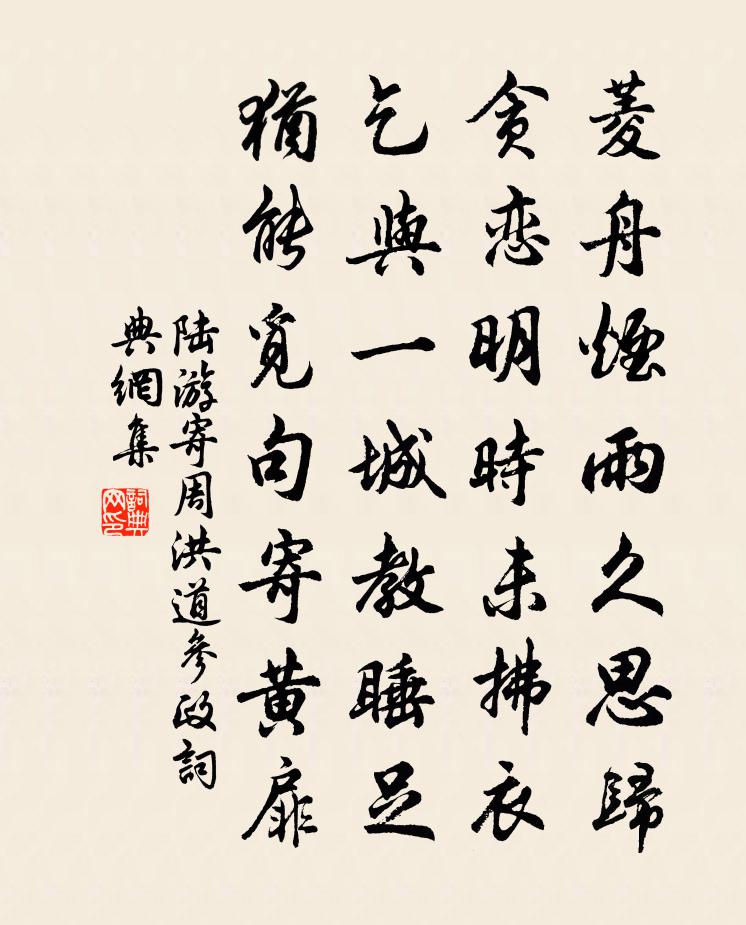 菱舟煙雨久思歸
貪恋明時未拂衣
乞與一城教睡足
猶能覓句寄黃扉
陆游寄周洪道參政詞
典網集
詞典
网印